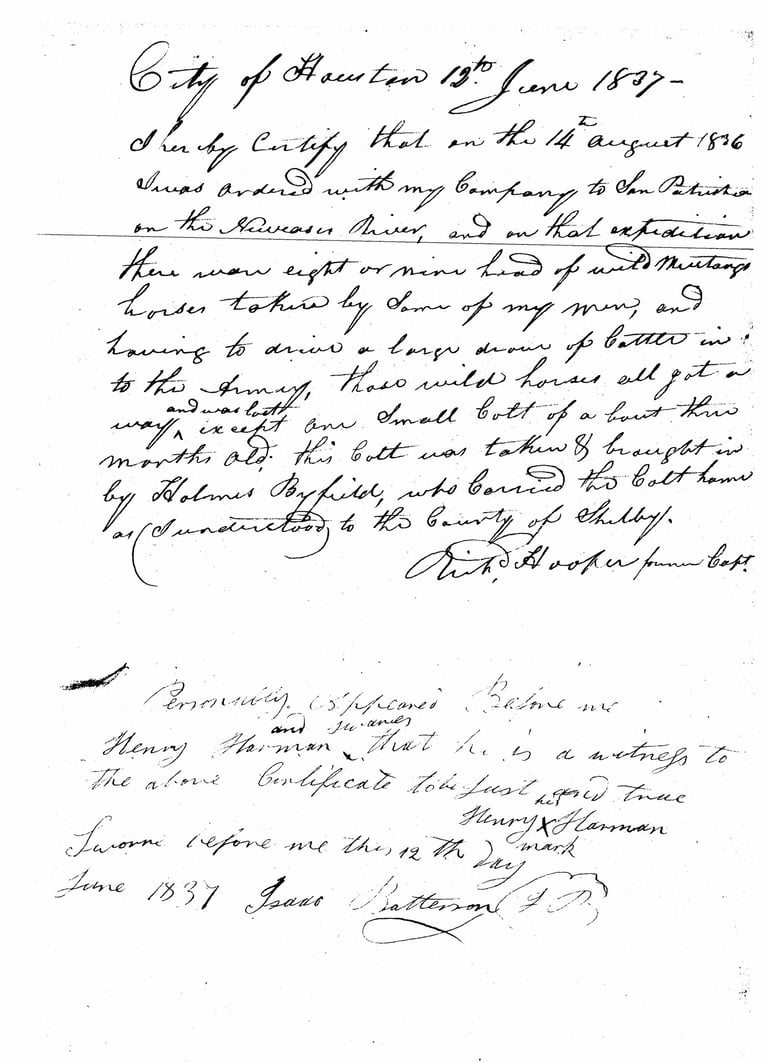 City of Houston 12th June 1837 –
I hereby Certify that on the 14th August 1836
I was ordered with my Company to San Patricio
on the Nueases River, and on that expedition
there ware eight or nine head of wild Mustangs
horses taken by Some of my men, and
having to drive a large drove of Cattle in
to the Army, those wild horses all got a
way and was lost except one Small Colt of a bout three
months old. this Colt was taken & brought in
by Holmes Byfield, who Carried the Colt home
as (I understood) to the County of Shelby.
Richd. Hooper former Capt.
Personally Appeared Before me
Henry Harman and swares that he is a witness to
the above Certificate to be Just and true
Henry his X mark Harman
Sworne before me this 12th day
June 1837 Isaac Batterson J P.